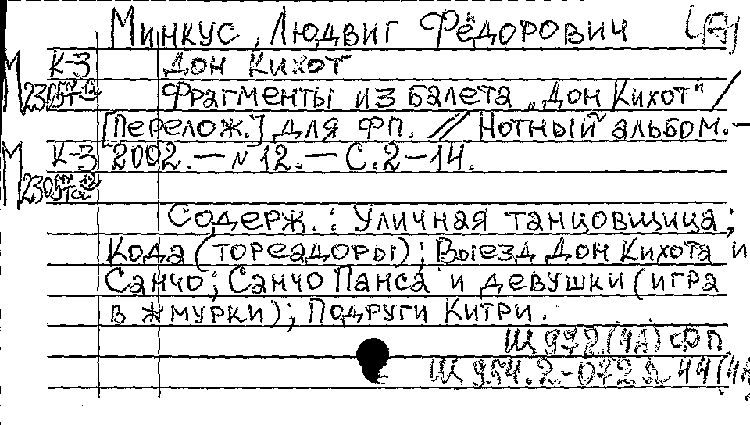 Минкус, Людвиг Фёдорович (А)
К-3 Дон Кихот
М Фрагменты из балета „Дон Кихот" /
[Перелож.] для фп. // Нотный альбом.—
М К-3 2002.—N12.—С.2-14.
Содерж.: Уличная танцовщица;
Кода (тореадоры); Выезд Дон Кихота и
Санчо; Санчо Панса и девушки (игра
в жмурки); Подруги Китри.
Щ 972(4А) фп
Щ 954.2-072